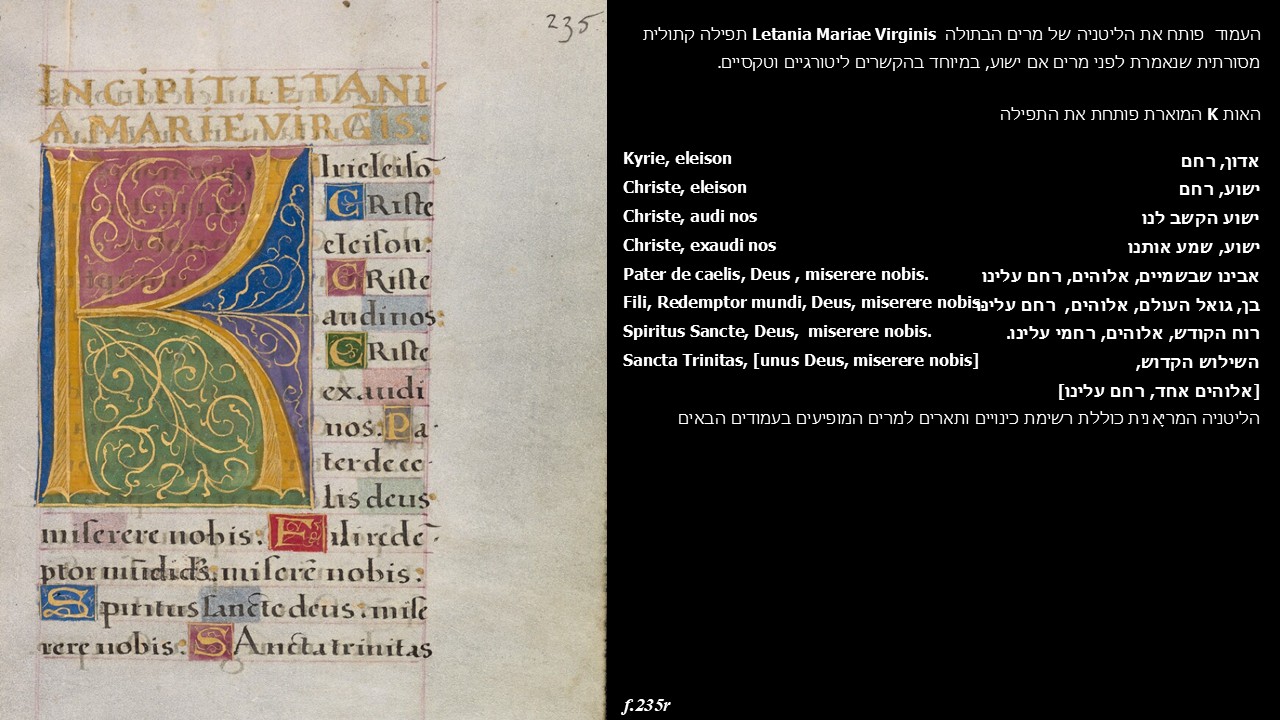 235
INCIPIT LETANI-
A MARIE VIRGĪS:
Irieleiso
CRiste
eleison:
CRiste
audi nos:
CRiste
exaudi
nos: Pa-
ter de ce-
lis deus
miserere nobis: Fili rede-
ptor mūdi ds, miserē nobis:
Spiritus sancte deus: mise
rere nobis: SAncta trinitas
העמוד פותח את הליטניה של מרים הבתולה Letania Mariae Virginis תפילה קתולית
מסורתית שנאמרת לפני מרים אם ישוע, במיוחד בהקשרים ליטורגיים וטקסיים.
האות K המוארת פותחת את התפילה
Kyrie, eleison אדון, רחם
Christe, eleison ישוע, רחם
Christe, audi nos ישוע הקשב לנו
Christe, exaudi nos ישוע, שמע אותנו
Pater de caelis, Deus , miserere nobis. אבינו שבשמיים, אלוהים, רחם עלינו
Fili, Redemptor mundi, Deus, miserere nobis. בן, גואל העולם, אלוהים, רחם עלינו
Spiritus Sancte, Deus, miserere nobis. רוח הקודש, אלוהים, רחמי עלינו.
Sancta Trinitas, [unus Deus, miserere nobis] השילוש הקדוש,
[אלוהים אחד, רחם עלינו]
הליטניה המריאָנית כוללת רשימת כינויים ותארים למרים המופיעים בעמודים הבאים
f.235r